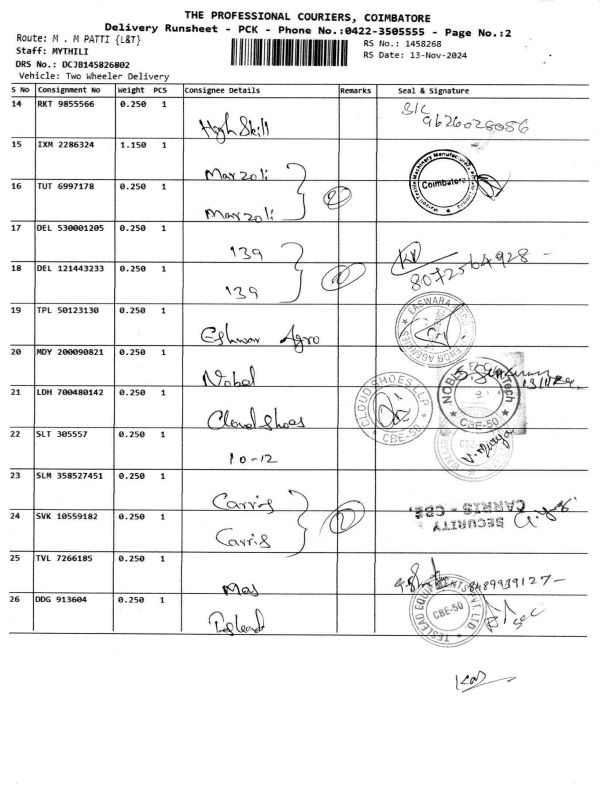 THE PROFESSIONAL COURIERS, COIMBATORE
Delivery Runsheet - PCK - Phone No.:0422-3505555 - Page No.:2
Route: M . M PATTI {L&T}
RS No.: 1458268
Staff: MYTHILI
RS Date: 13-Nov-2024
DRS No.: DCJB145826802
Vehicle: Two Wheeler Delivery
S No Consignment No Weight PCS Consignee Details Remarks Seal & Signature
14 RKT 9855566 0.250 1
High Skill 9626028056
15 IXM 2286324 1.150 1
Marzoli Coimbatore
16 TUT 6997178 0.250 1
Marzoli 2
17 DEL 530001205 0.250 1
139 8072564928 -
18 DEL 121443233 0.250 1
139
19 TPL 50123130 0.250 1
Eshwar Agro
20 MDY 200090821 0.250 1
Nobel
21 LDH 700480142 0.250 1
Cloud Shoes CLOUD SHOES LLP CBE-50 CBE-50
22 SLT 305557 0.250 1
10-12
23 SLM 358527451 0.250 1
Carris
24 SVK 10559182 0.250 1
Carris 2 SECURITY CARRIS - CBE.
25 TVL 7266185 0.250 1
Mas 8489939127-
26 DDG 913604 0.250 1
Teslead TESLEAD EQUIPMENTS PVT. LTD. CBE-50